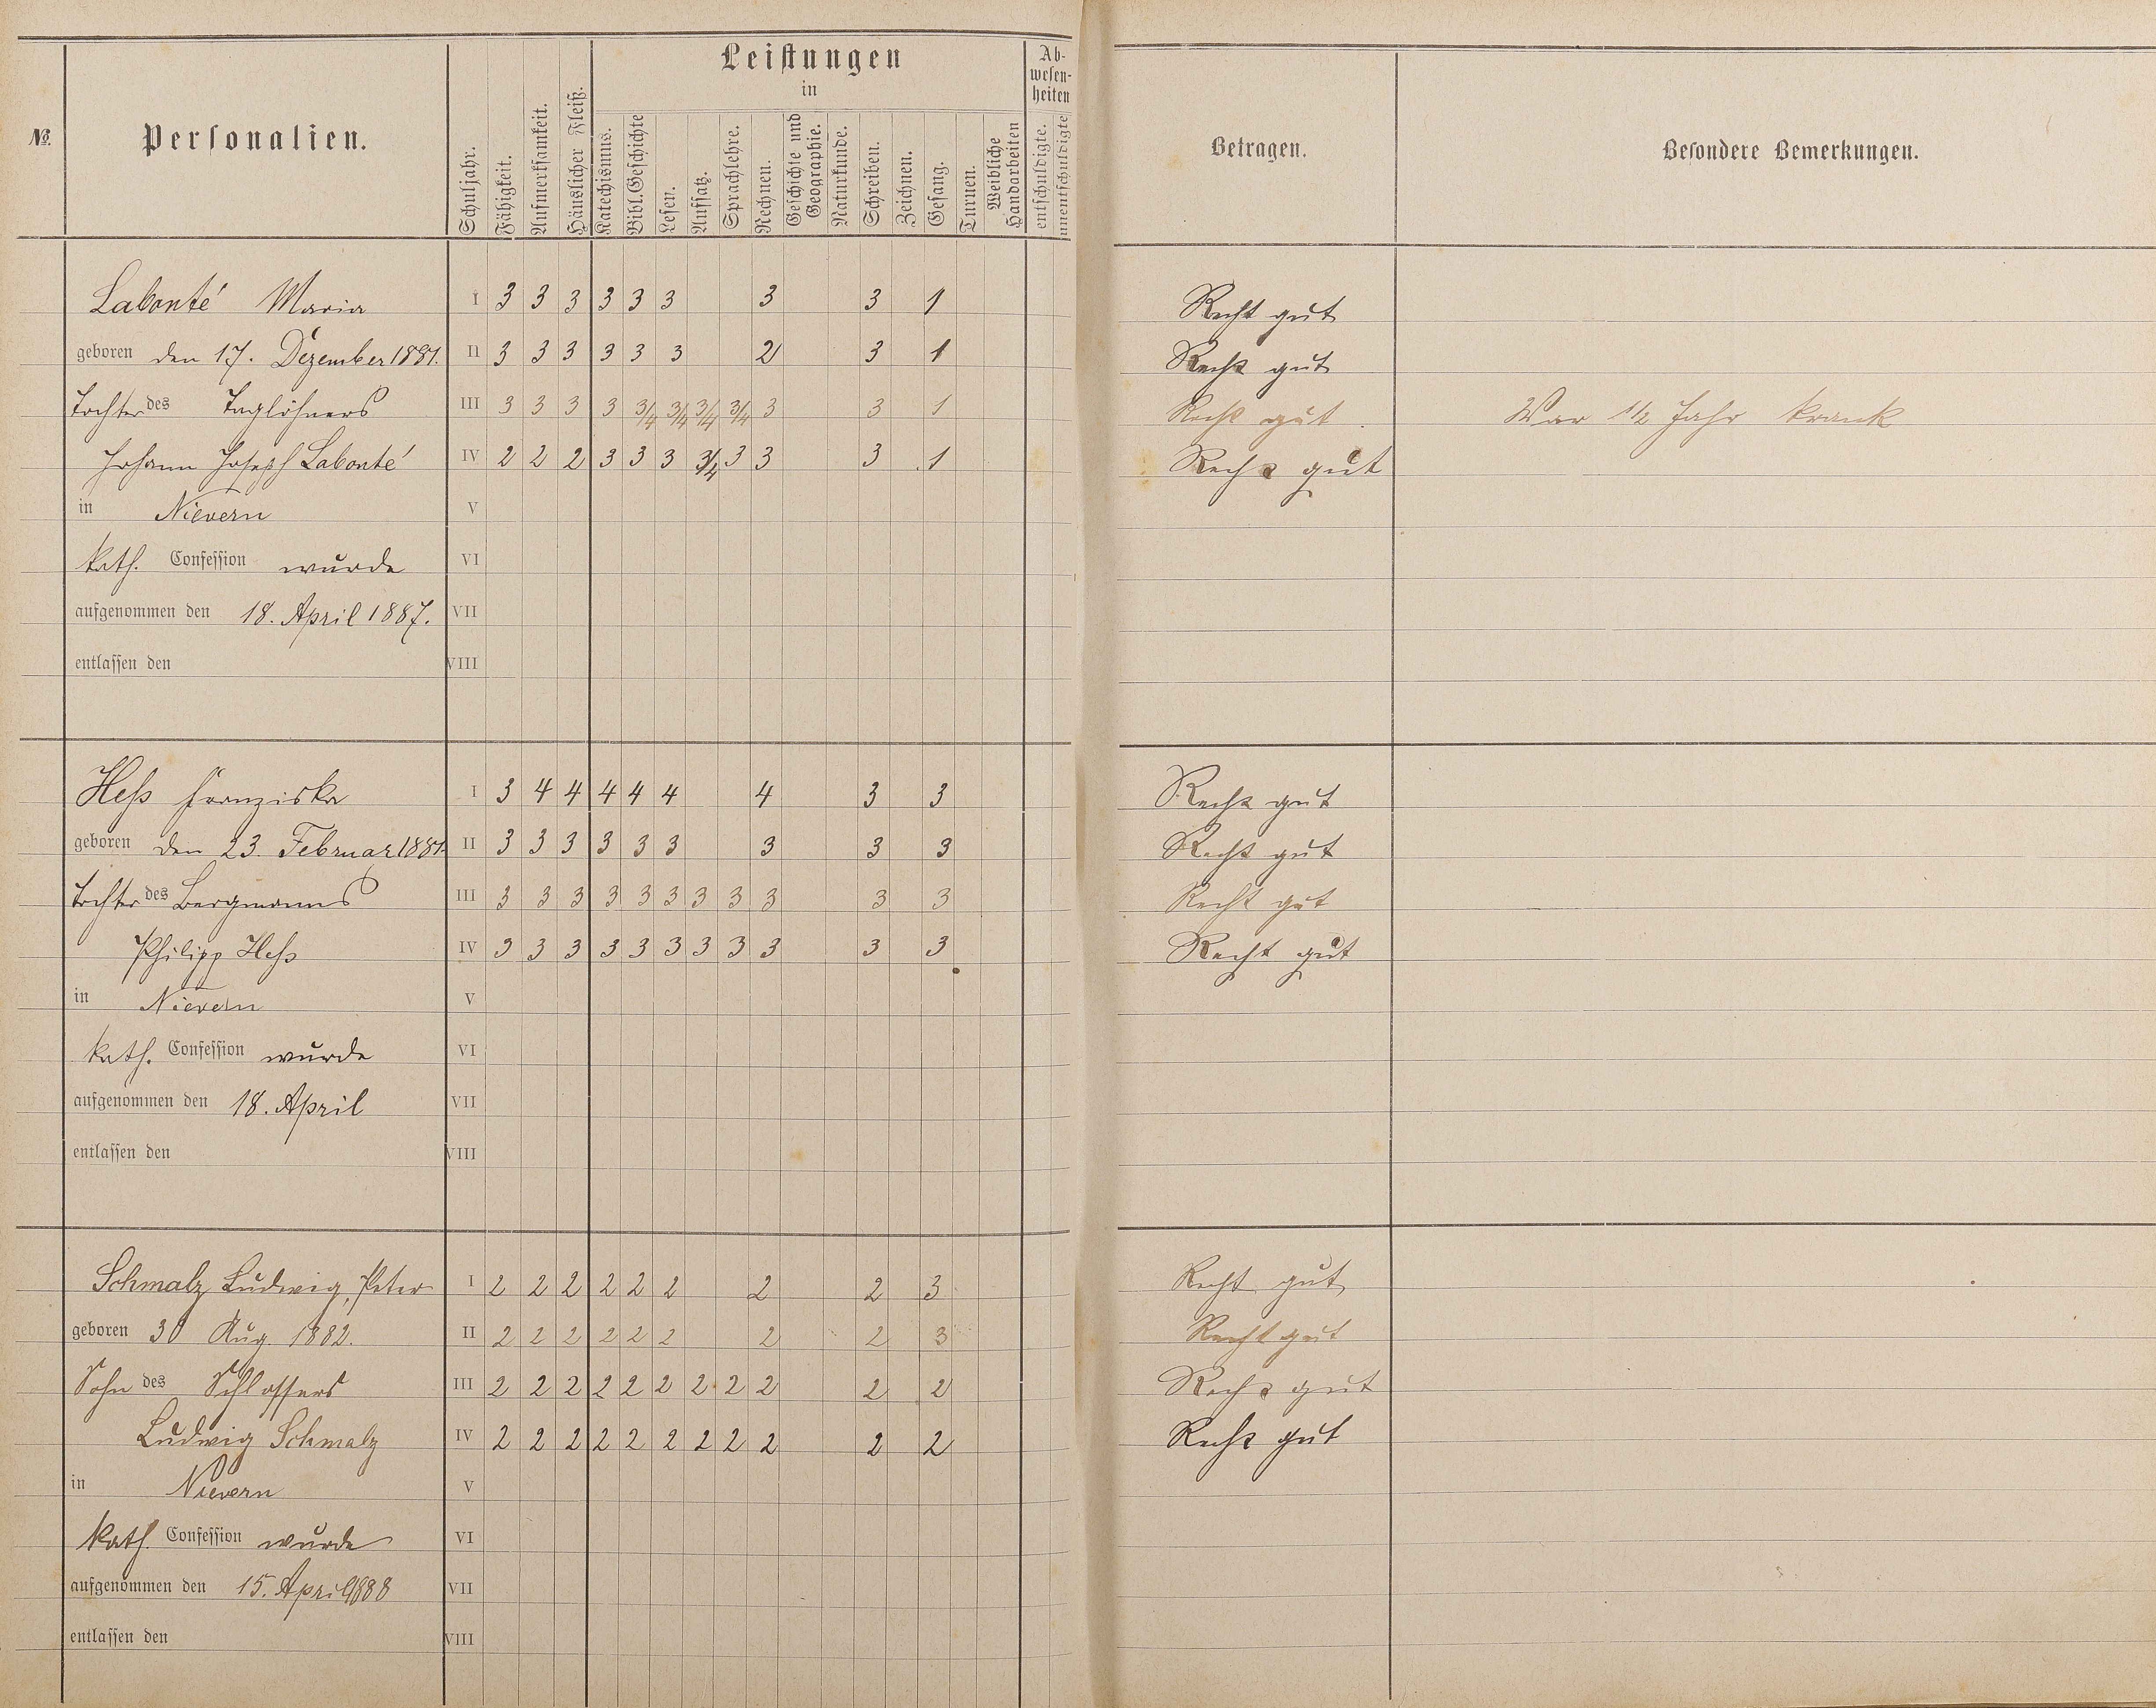 №.
Personalien.
Schuljahr.
Fähigkeit.
Aufmerksamkeit.
Häuslicher Fleiß.
Leistungen
in
Katechismus.
Bibl. Geschichte
Lesen.
Aufsatz.
Sprachlehre.
Rechnen.
Geschichte und
Geographie.
Naturkunde.
Schreiben.
Zeichnen.
Gesang.
Turnen.
Weibliche
Handarbeiten
Ab-
wesen-
heiten
entschuldigte.
unentschuldigte
Betragen.
Besondere Bemerkungen.
Labonté Maria I 3 3 3 3 3 3 3 3 1 Recht gut
geboren den 17. Dezember 1881. II 3 3 3 3 3 3 2 3 1 Recht gut
Tochter des Taglöhners III 3 3 3 3 3/4 3/4 3/4 3/4 3 3 1 Recht gut. War 1 1/2 Jahr krank
Johann Joseph Labonté IV 2 2 2 3 3 3 3/4 3 3 3 1 Recht gut
in Nievern V
kath. Confession wurde VI
aufgenommen den 18. April 1887. VII
entlassen den VIII
Heß Franziska I 3 4 4 4 4 4 4 3 3 Recht gut
geboren den 23. Februar 1881. II 3 3 3 3 3 3 3 3 3 Recht gut
Tochter des Bergmanns III 3 3 3 3 3 3 3 3 3 3 3 Recht gut
Philipp Heß IV 3 3 3 3 3 3 3 3 3 3 3 Recht gut
in Nievern V
kath. Confession wurde VI
aufgenommen den 18. April VII
entlassen den VIII
Schmalz Ludwig, Peter I 2 2 2 2 2 2 2 2 3 Recht gut
geboren 30 Aug. 1882. II 2 2 2 2 2 2 2 2 3 Recht gut
Sohn des Schlossers III 2 2 2 2 2 2 2 2 2 2 2 Recht gut
Ludwig Schmalz IV 2 2 2 2 2 2 2 2 2 2 2 Recht gut
in Nievern V
kath. Confession wurde VI
aufgenommen den 15. April 1888 VII
entlassen den VIII